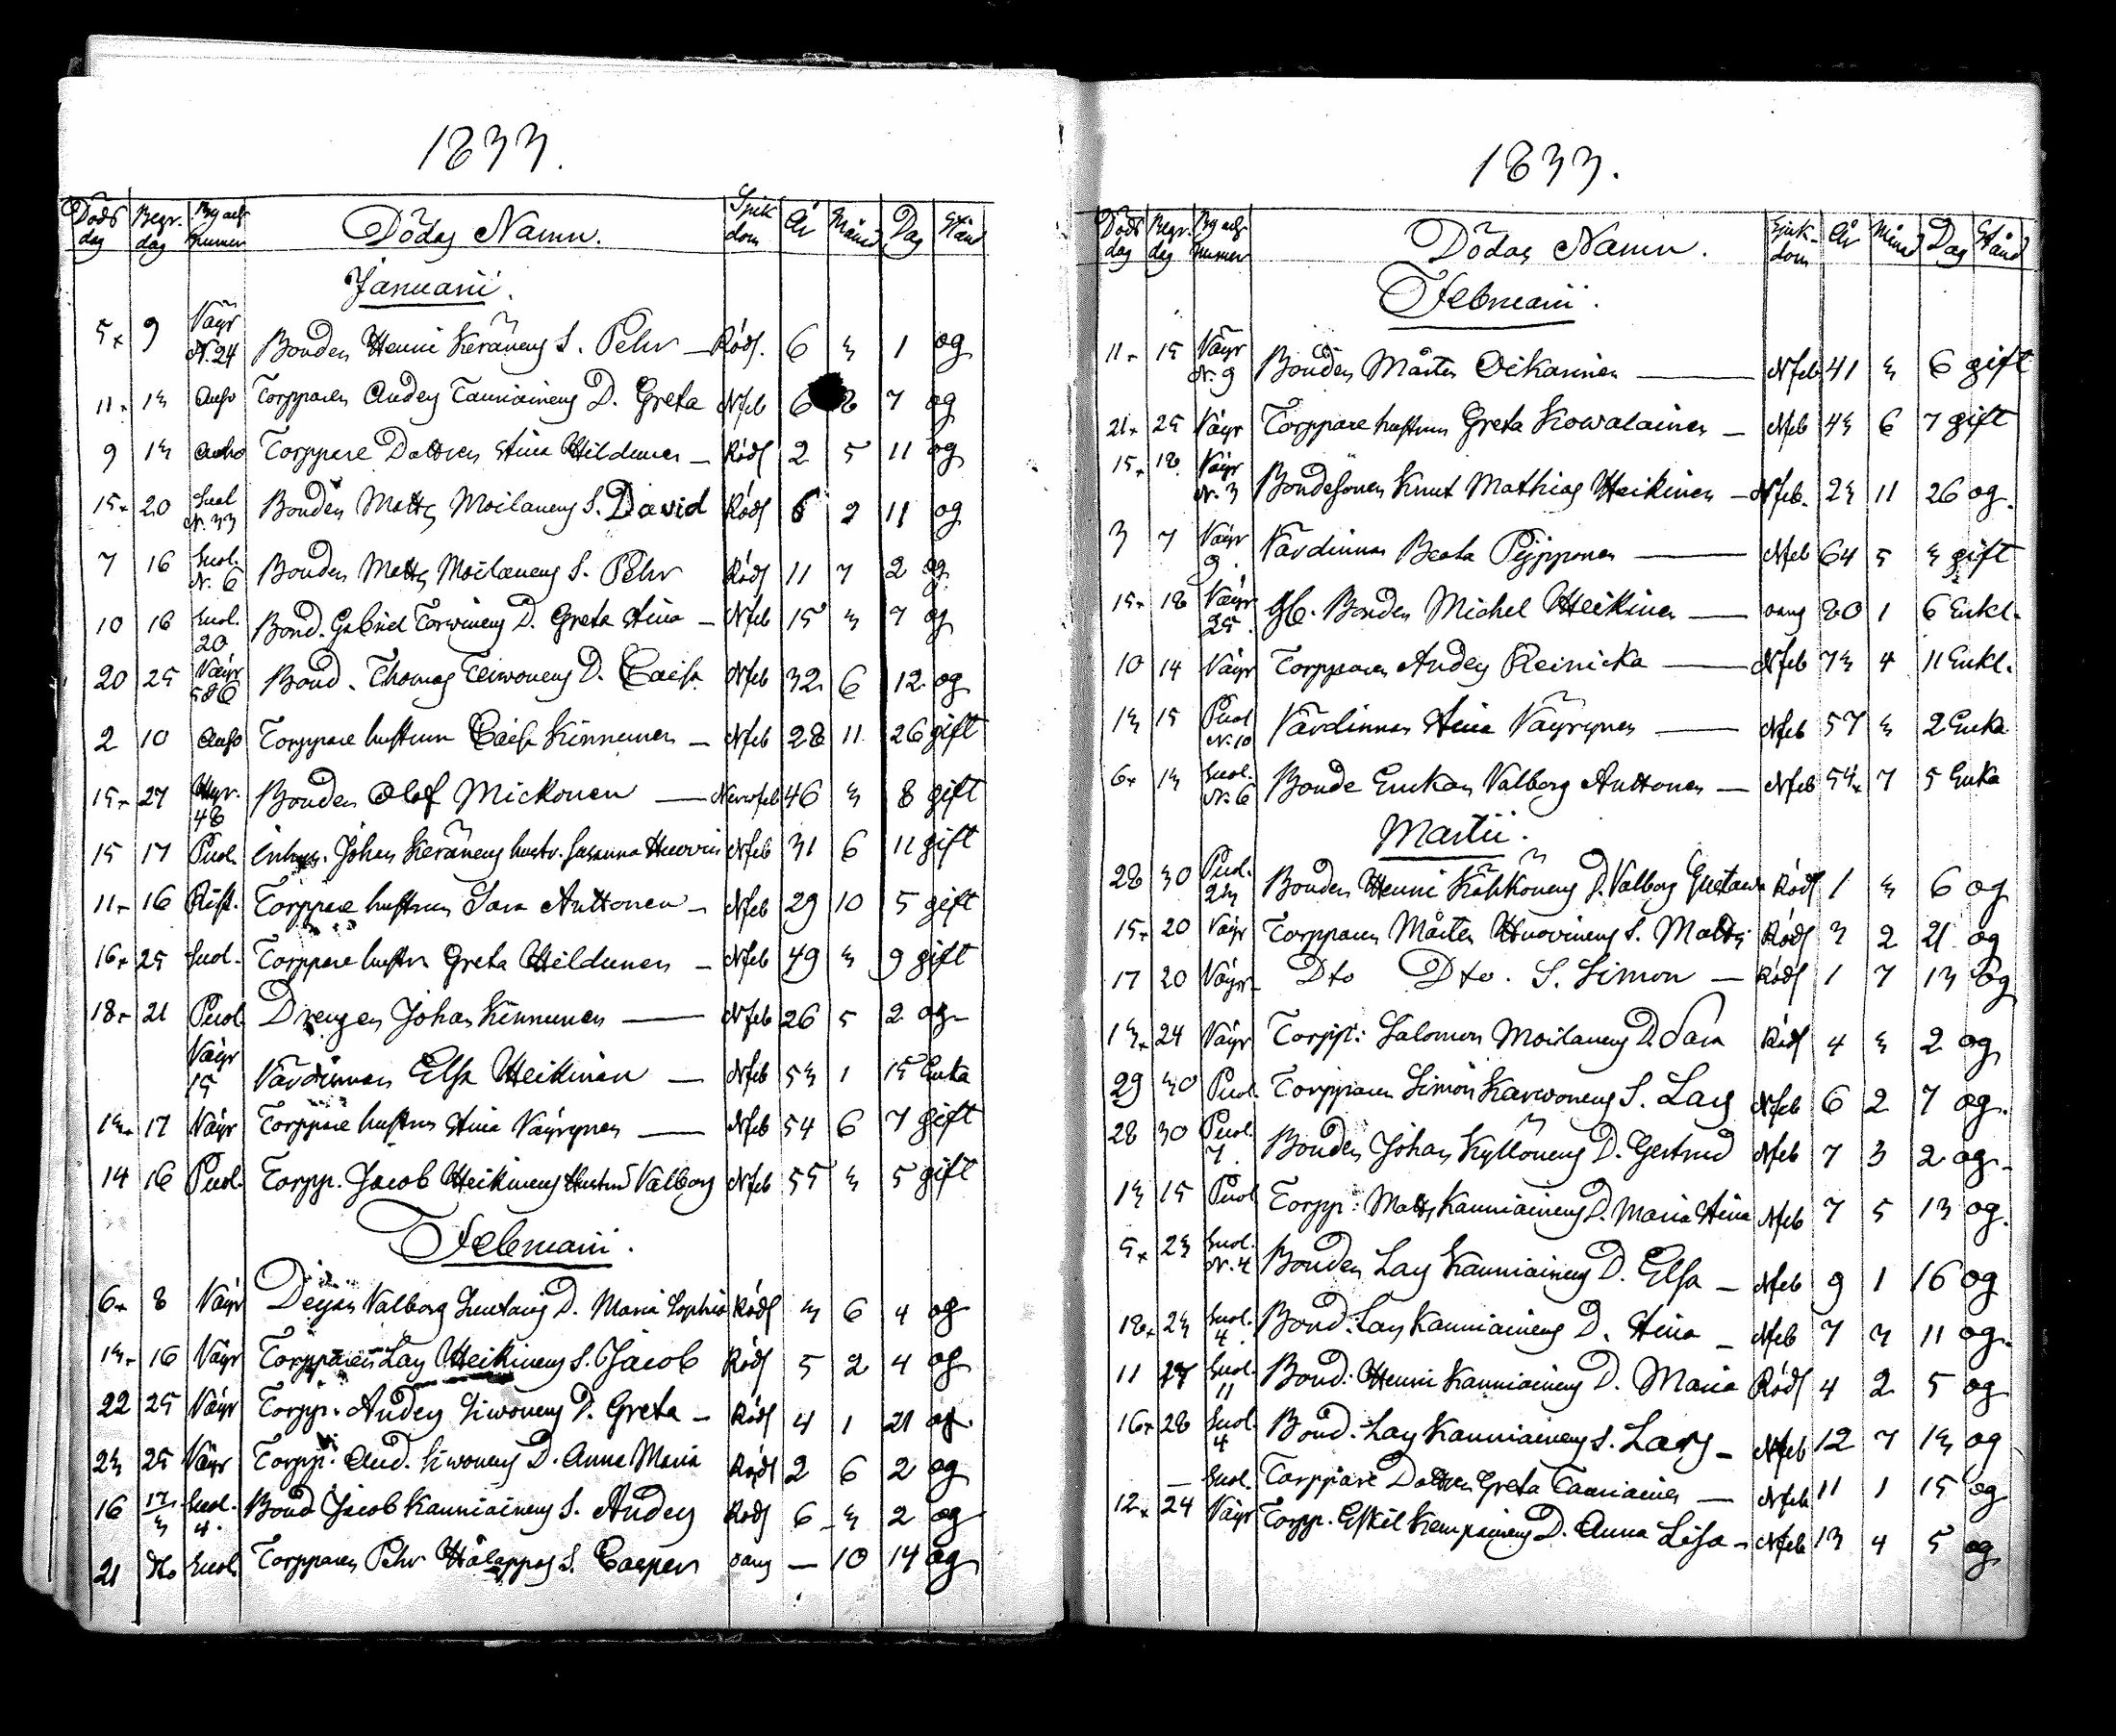 1833.
Döds dag Begr. dag Byars numer Dödas Namn. Sjuk dom År Månad Dag Stånd
Januarii.
5 9 Väyr N. 24 Bonden Henric Keränens S. Pehr — Röds. 6 3 1 og
11 13 Auho Torpparen Anders Tauriainens D. Greta Nfeb 6 8 7 og
9 13 Auho Torppare Dottren Stina Hildunen — Röds 2 5 11 og
15 20 Suol N. 33 Bonden Matts Moilanens S. David Röds 6 2 11 og
7 16 Suol. N. 6 Bonden Matts Moilanens S. Pehr Röds 11 7 2 og
10 16 Suol. 20 Bond. Gabriel Torvinens D. Greta Stina — Nfeb 15 3 7 og
20 25 Väyr 586 Bond. Thomas Teivonens D. Caisa Nfeb 32 6 12 og
2 10 Auho Torppare hustrun Caisa Kinnunen — Nfeb 28 11 26 gift
15 27 Hyr. 48 Bonden Olof Mickonen — Nervfeb 46 3 8 gift
15 17 Puol. Inhys. Johan Keränens hustr. Susanna Huovin Nfeb 31 6 11 gift
11 16 Rist. Torppare hustrun Sara Anttonen — Nfeb 29 10 5 gift
16 25 Suol. Torppare hustru Greta Hildunen — Nfeb 49 3 9 gift
18 21 Puol Drengen Johan Kinnunen — Nfeb 26 5 2 og
Väyr 15 Värdinnan Elsa Heikinen — Nfeb 53 1 15 Enka
13 17 Väyr Torppare hustrun Stina Väyrynen — Nfeb 54 6 7 gift
14 16 Puol. Torpp. Jacob Heikinens Hustru Valborg Nfeb 55 3 5 gift
Februarii.
6 8 Väyr Deijan Valborg D. Maria Sophia Röds 3 6 4 og
13 16 Väyr Torpparen Lars Heikinens S. Jacob Röds 5 2 4 og
22 25 Väyr Torpp. Anders Siwonens D. Greta — Röds 4 1 21 og
23 25 Väyr Torpp. And. Siwonens D. Anna Maria Röds 2 6 2 og
16 17/3 Suol. 4. Bond Jacob Kauniainens S. Anders Röds 6 3 2 og
21 dto Suol Torpparen Pehr Hålappas S. Casper oäng — 10 14 og
1833.
Döds dag Begr. dag Byars numer Dödas Namn. Sjuk-dom År Månad Dag Stånd
Februarii.
11 15 Väyr N. 9 Bonden Mårten Oikarinen — Nfeb 41 3 6 gift
21 25 Väyr Torppare hustrun Greta Kowalainen — Nfeb 43 6 7 gift
15 18 Väyr N. 3 Bondesonen Knut Mathias Heikinen — Nfeb. 23 11 26 og.
3 7 Väyr 9. Värdinnan Beata Pyypponen — Nfeb 64 5 3 gift
15 18 Väyr 25. Gl. Bonden Michel Heikinen — oäng 80 1 6 Enkl.
10 14 Väyr Torpparen Anders Reinicka — Nfeb 73 4 11 Enkl.
13 15 Puol N. 10 Värdinnan Stina Väyrynen — Nfeb 57 3 2 Enka
6 13 Suol. N. 6 Bonde Enckan Valborg Anttonen — Nfeb 54 7 5 Enka
Martii.
28 30 Puol. 23 Bonden Henric Kähkönens D. Valborg Gustava Röds 1 3 6 og
15 20 Väyr Torpparen Mårten Huovinens S. Matts Röds 3 2 21 og
17 20 Väyr Dto Dto. S. Simon — Röds 1 7 13 og
13 24 Väyr Torpp: Salomon Moilanens D. Sara Röds 4 3 2 og
29 30 Puol. Torpparen Simon Karwonens S. Lars Nfeb 6 2 7 og.
28 30 Puol. 7. Bonden Johan Kyllönens D. Gertrud Nfeb 7 3 2 og
13 15 Puol Torpp: Matts Kauniainens D. Maria Stina Nfeb 7 5 13 og.
5 23 Suol. N. 4 Bonden Lars Kauniainens D. Elsa — Nfeb 9 1 16 og
18 23 Suol. 4. Bond. Lars Kauniainens D. Stina — Nfeb 7 3 11 og
11 27 Suol. 11 Bond: Henric Kauniainens D. Maria Röds 4 2 5 og
16 28 Suol. 4 Bond. Lars Kauniainens S. Lars — Nfeb 12 7 13 og
— Suol. Torppare Dottren Greta Tauriainen — Nfeb 11 1 15 og
12 24 Väyr Torpp. Eskil Kemppainens D. Anna Lisa — Nfeb 13 4 5 og